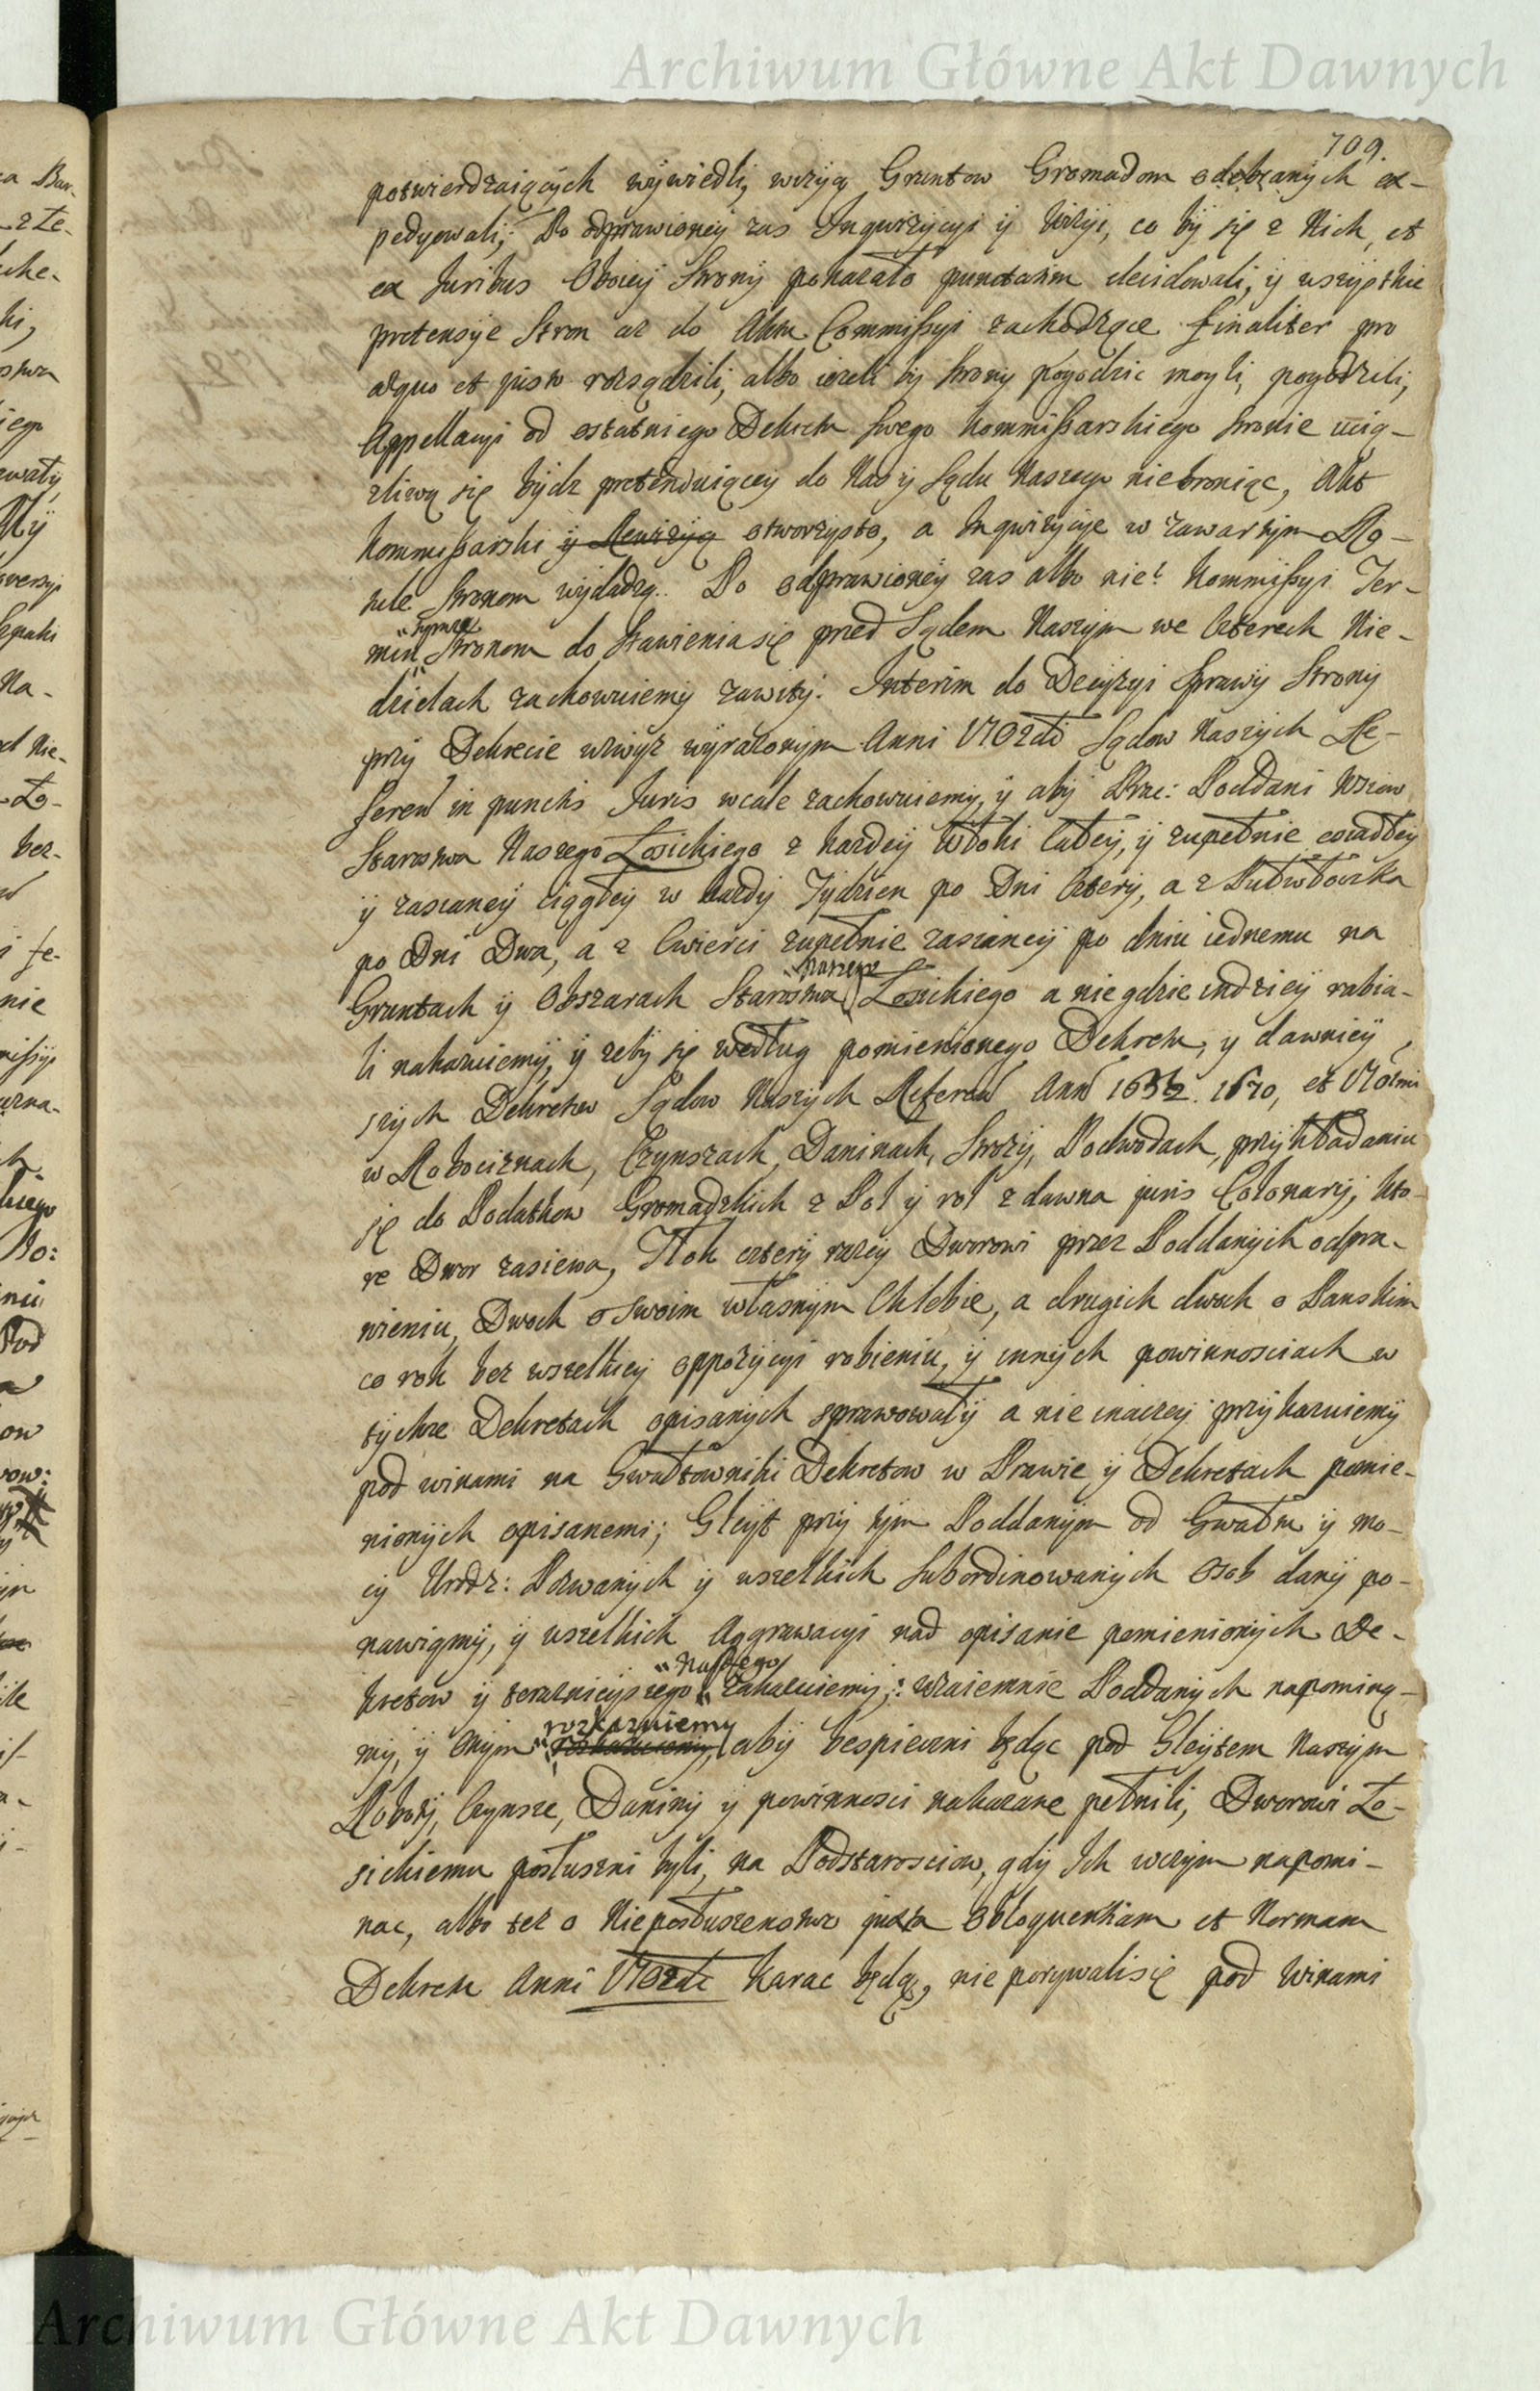 Archiwum Główne Akt Dawnych
709.
potwierdzaiących wywiedli, wizyą Gruntow Gromadom odebranych ex-
pedyowali; Po odprawioney zas Inquizycyi y Wizyi, co by się z Nich, et
ex Juribus Oboiey Strony pokazało punctatim decidowali, y wszystkie
pretensye Stron az do Aktu Commissyi zachodzące finaliter pro
æquo et justo rozsądzili, albo iezeli by Strony pogodzic mogli, pogodzili,
Appellacyi od ostatniego Dekretu swego Kommissarskiego Stronie ucią-
zliwą się bydz pretenduiącey do Nas y Sądu Naszego niebroniąc, Akt
Kommissarski y Rewizyą otworzysto, a Inqwizycye w zawartym Ro-
tule Stronom wydadzą. Po odprawioney zas albo nie: Kommissyi Ter-
"tymze
min" Stronom do Stawienia się przed Sądem Naszym we Czterech Nie-
dzielach zachowuiemy zawity: Interim do Decyzyi Sprawy Strony
przy Dekrecie wzwyz wyrazonym Anni Sądow Naszych Re-
feren in punctis Juris wcale zachowuiemy, y aby Prac: Poddani Wsiow
Starostwa Naszego Łosickiego z kazdey Włoki Całey, y zupełnie osiadłey
y zasianey ciągłey w kazdy Tydzien po Dni Cztery, a z Pułwłoczka
po Dni Dwa, a z Cwierci zupełnie zasianey po dniu iednemu na
"Naszego
Gruntach y Obszarach Starostwa Łosickiego a nie gdzie indziey rabia-
li nakazuiemy, y zeby się według pomienionego Dekretu, y dawniey
szych Dekretow Sądow Naszych Referen Ann 1670, et
w Robociznach, Czynszach, Daninach, Strozy, Podwodach, przykładaniu
się do Podatkow Gromadzkich z Pol y rol zdawna juris Colonarij, kto-
re Dwor zasiewa, Tłok cztery razy Dworowi przez Poddanych odpra-
wieniu, Dwoch o swoim własnym Chlebie, a drugich dwoch o Panskim
co rok bez wszelkiey oppozycyi robieniu, y innych powinnosciach w
tychze Dekretach opisanych sprawowały a nie inaczey przykazuiemy
pod winami na Gwałtowniki Dekretow w Prawie y Dekretach pomie-
nionych opisanemi; Gleyt przy tym Poddanym od Gwałtu y mo-
cy Urodz: Pozwanych y wszelkich Subordinowanych Osob dany po-
nawiamy, y wszelkich Aggrawacyi nad opisanie pomienionych De-
"Naszego
kretow y teraznieyszego" zakazuiemy; wzaiemnie Poddanych napomina-
rozkazuiemy
my, y Onym " rozkazuiemy, aby bespieczni będąc pod Gleytem Naszym
Roboty, Czynsze, Daniny y powinnosci nakazane pełnili, Dworowi Ło-
sickiemu posłuszni byli, na Podstarosciow, gdy Ich wczym napomi-
nac, albo tez o Nieposłuszenstwo juxta obloquentiam et Normam
Dekretu Anni karac będą, nie porywali się pod Winami
Archiwum Główne Akt Dawnych